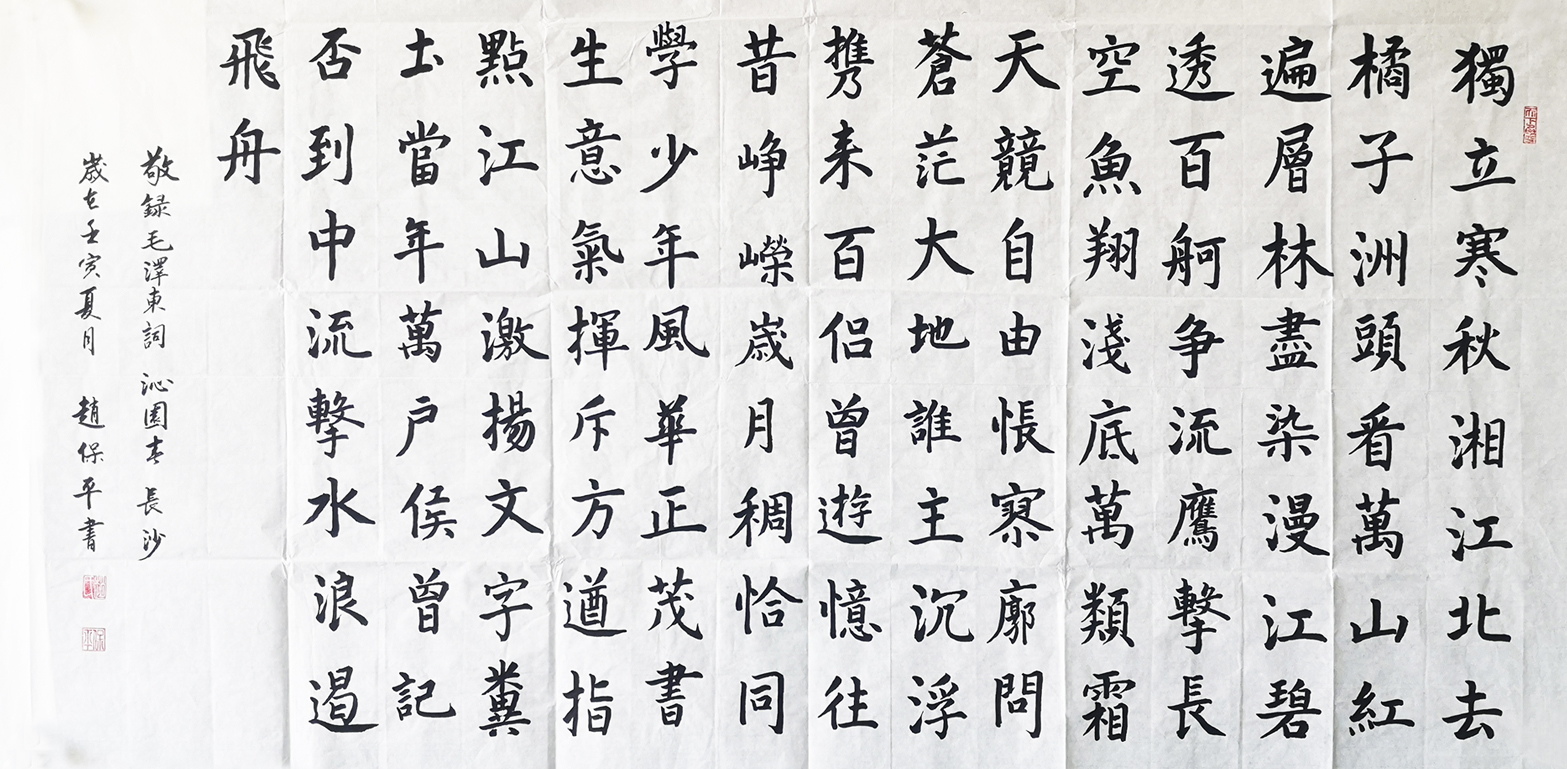 獨立寒秋湘江北去
橘子洲頭看萬山紅
遍層林盡染漫江碧
透百舸争流鷹擊長
空魚翔淺底萬類霜
天競自由悵寥廓問
蒼茫大地誰主沉浮
携来百侣曾遊憶往
昔峥嶸歲月稠恰同
學少年風華正茂書
生意氣揮斥方遒指
點江山激揚文字糞
土當年萬户侯曾記
否到中流擊水浪遏
飛舟
敬録毛澤東詞 沁園春 長沙
歲在壬寅夏月 趙保平書